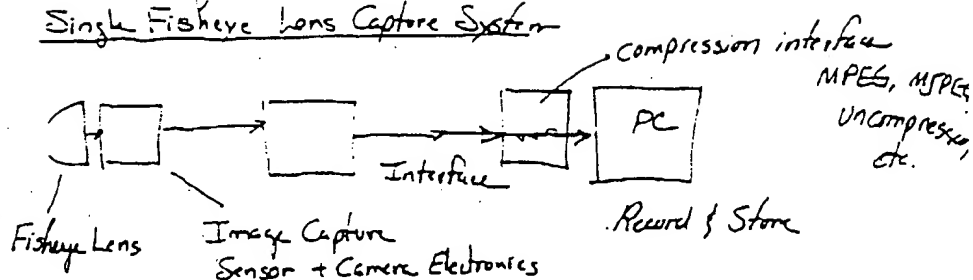 Single Fisheye Lens Capture System
compression interface
MPEG, MJPEG,
uncompressed,
etc.
PC
Interface
Record & Store
Fisheye Lens
Image Capture
Sensor + Camera Electronics